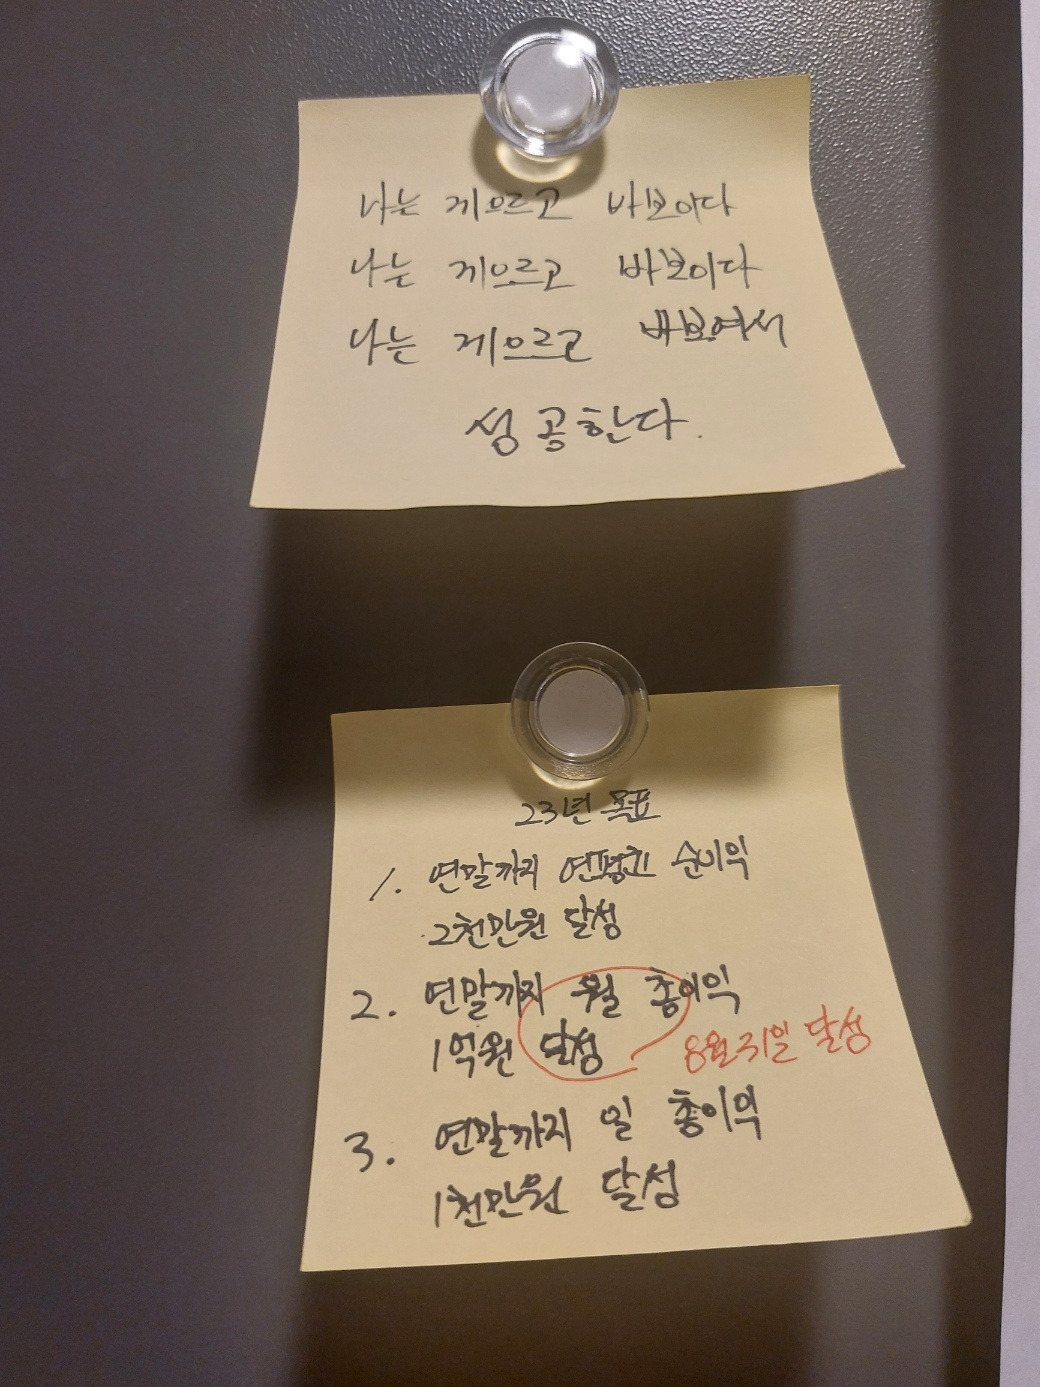 나는 게으르고 바보이다
나는 게으르고 바보이다
나는 게으르고 바보여서
성공한다.
23년 목표
1. 연말까지 연평균 순이익
2천만원 달성
2. 연말까지 월 총이익
1억원 달성
8월31일 달성
3. 연말까지 일 총이익
1천만원 달성